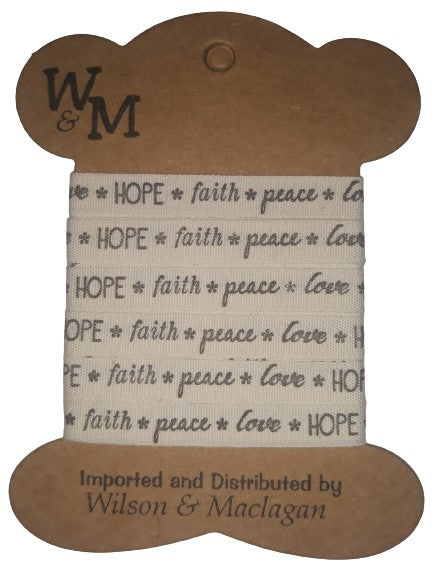 W
&M
ve * HOPE * faith * peace * lo
* HOPE * faith * peace * love
* HOPE * faith * peace * love *
OPE * faith * peace * love * H
PE * faith * peace * love * HOP
* faith * peace * love * HOPE
Imported and Distributed by
Wilson & Maclagan